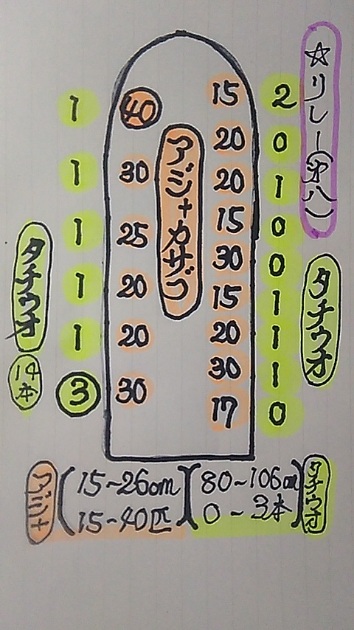 ☆リレー(第八)
タチウオ
2
0
1
0
0
1
1
1
0
15
20
20
15
30
15
20
30
17
アジ+カサゴ
40
30
25
20
20
30
1
1
1
1
1
3
タチウオ
14本
アジ+
15~26cm
15~40匹
80~106cm
0~3本
タチウオ